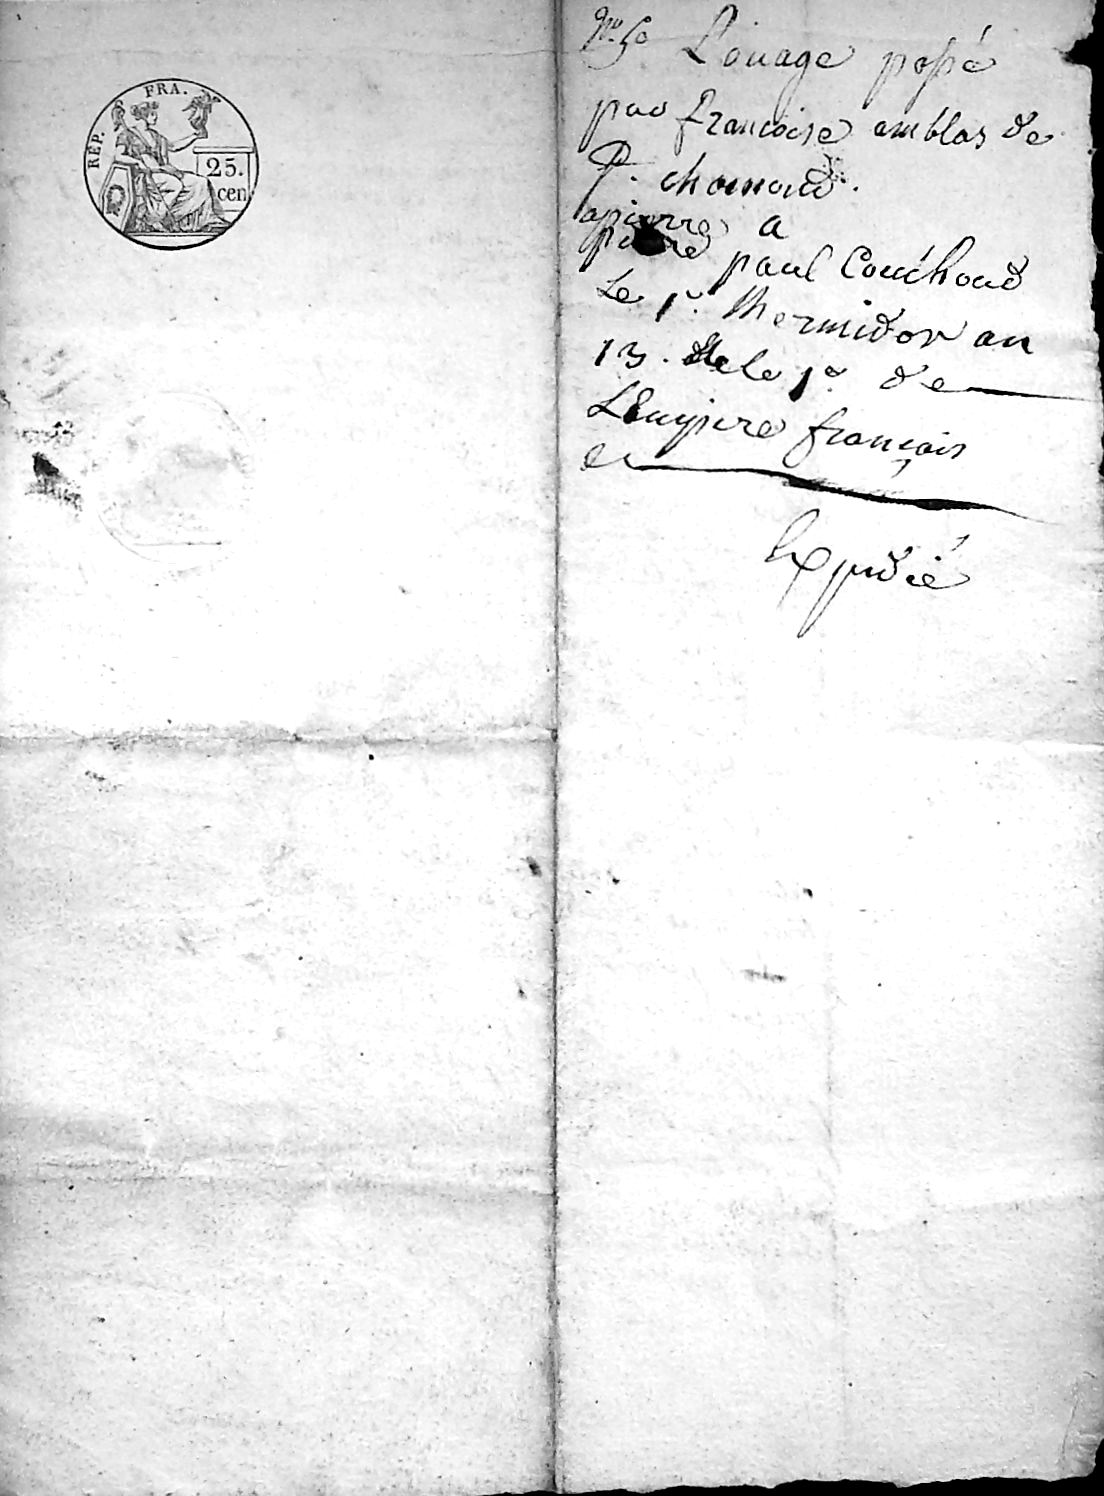 RÉP. FRA.
25.
cen
No. 50 Louage passé
par francoise emblas de
St. chamond.
a pierre a
pierre paul Couchoud
Le 1er. thermidor an
13. et le 1er de
L'Empire francais
Expedié